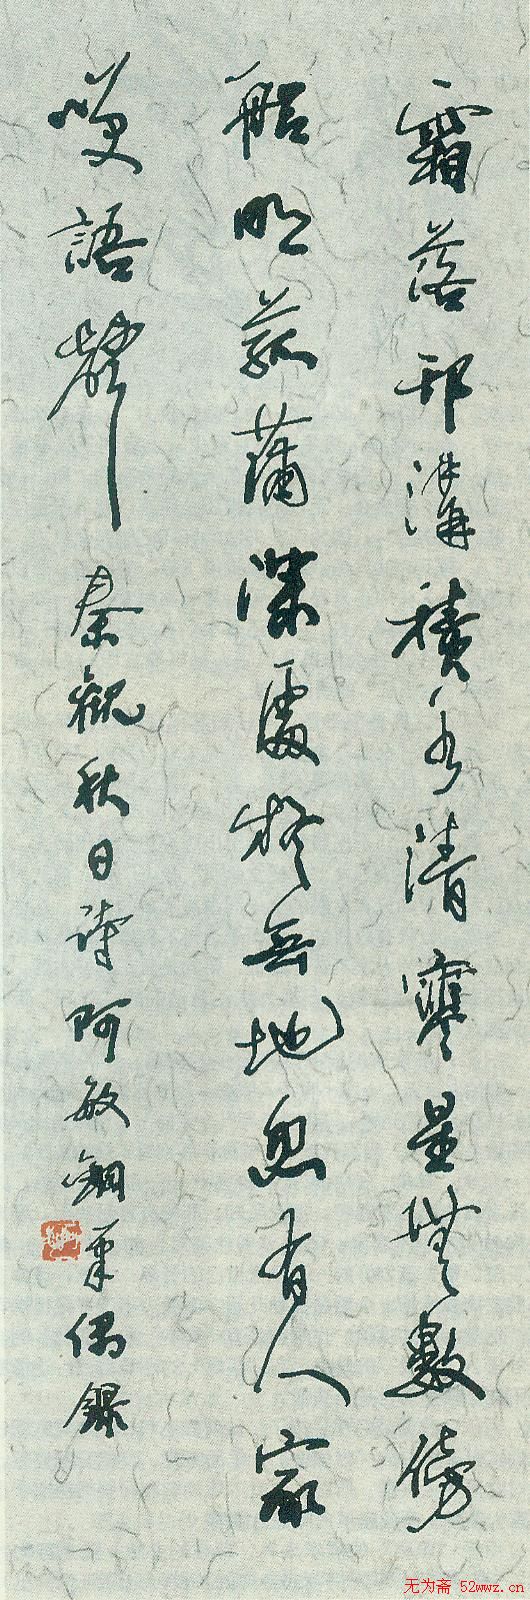 霜落邗溝積水清寒星無數傍
船明菰蒲深處疑無地忽有人家
咲語聲 秦觀秋日詩阿敏鋼筆偶錄
无为斋 52wwz.cn